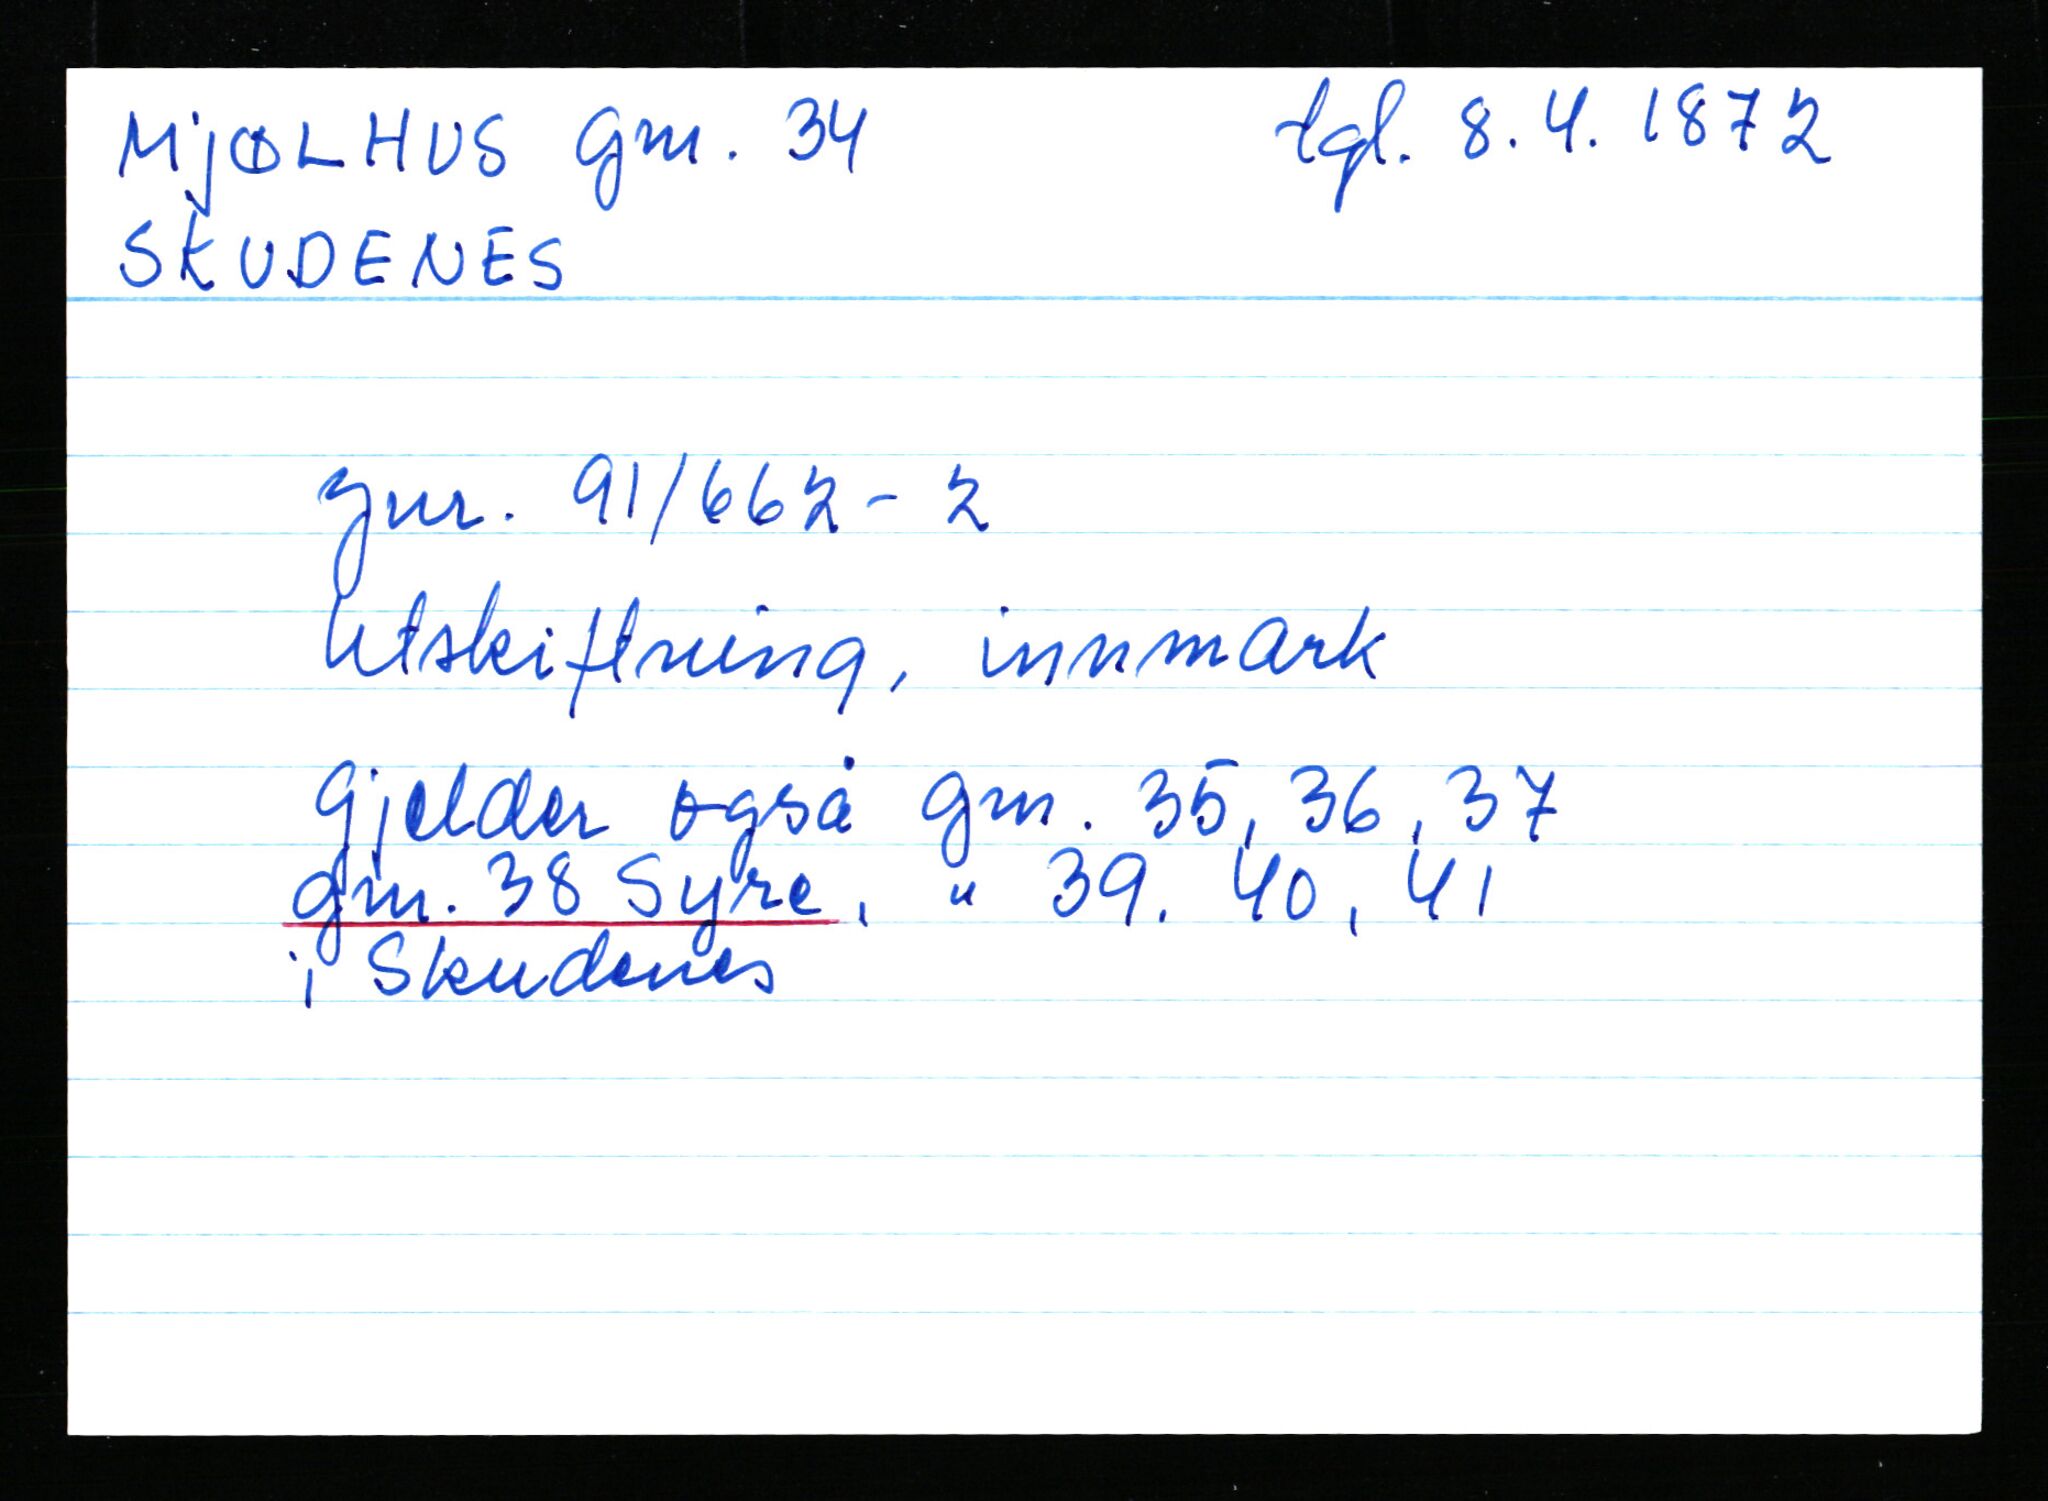 MjØLHUS gm. 34 tgl. 8.4.1872
SKUDENES
gnr. 91/662-2
Utskiftning, innmark
Gjelder også gm. 35, 36, 37
gm. 38 Syre, " 39. 40, 41
i Skudenes